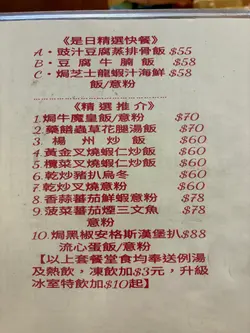 《是日精選快餐》
A·豉汁豆腐蒸排骨飯 $55
B·豆腐牛腩飯 $58
C·焗芝士龍蝦汁海鮮 $58
飯/意粉
《精選推介》
1.焗牛魔皇飯/意粉 $70
2.藥膳蟲草花腿湯飯 $60
3.楊州炒飯 $60
4.黃金叉燒蝦仁炒飯 $60
5.欖菜叉燒蝦仁炒飯 $60
6.乾炒豬扒烏冬 $60
7.乾炒叉燒意粉 $60
8.香蒜蕃茄鮮蝦意粉 $78
9.菠菜蕃茄煙三文魚 $78
意粉
10.焗黑椒安格斯漢堡扒 $88
流心蛋飯/意粉
【以上套餐堂食均奉送例湯
及熱飲，凍飲加$3元，升級
冰室特飲加$10起】